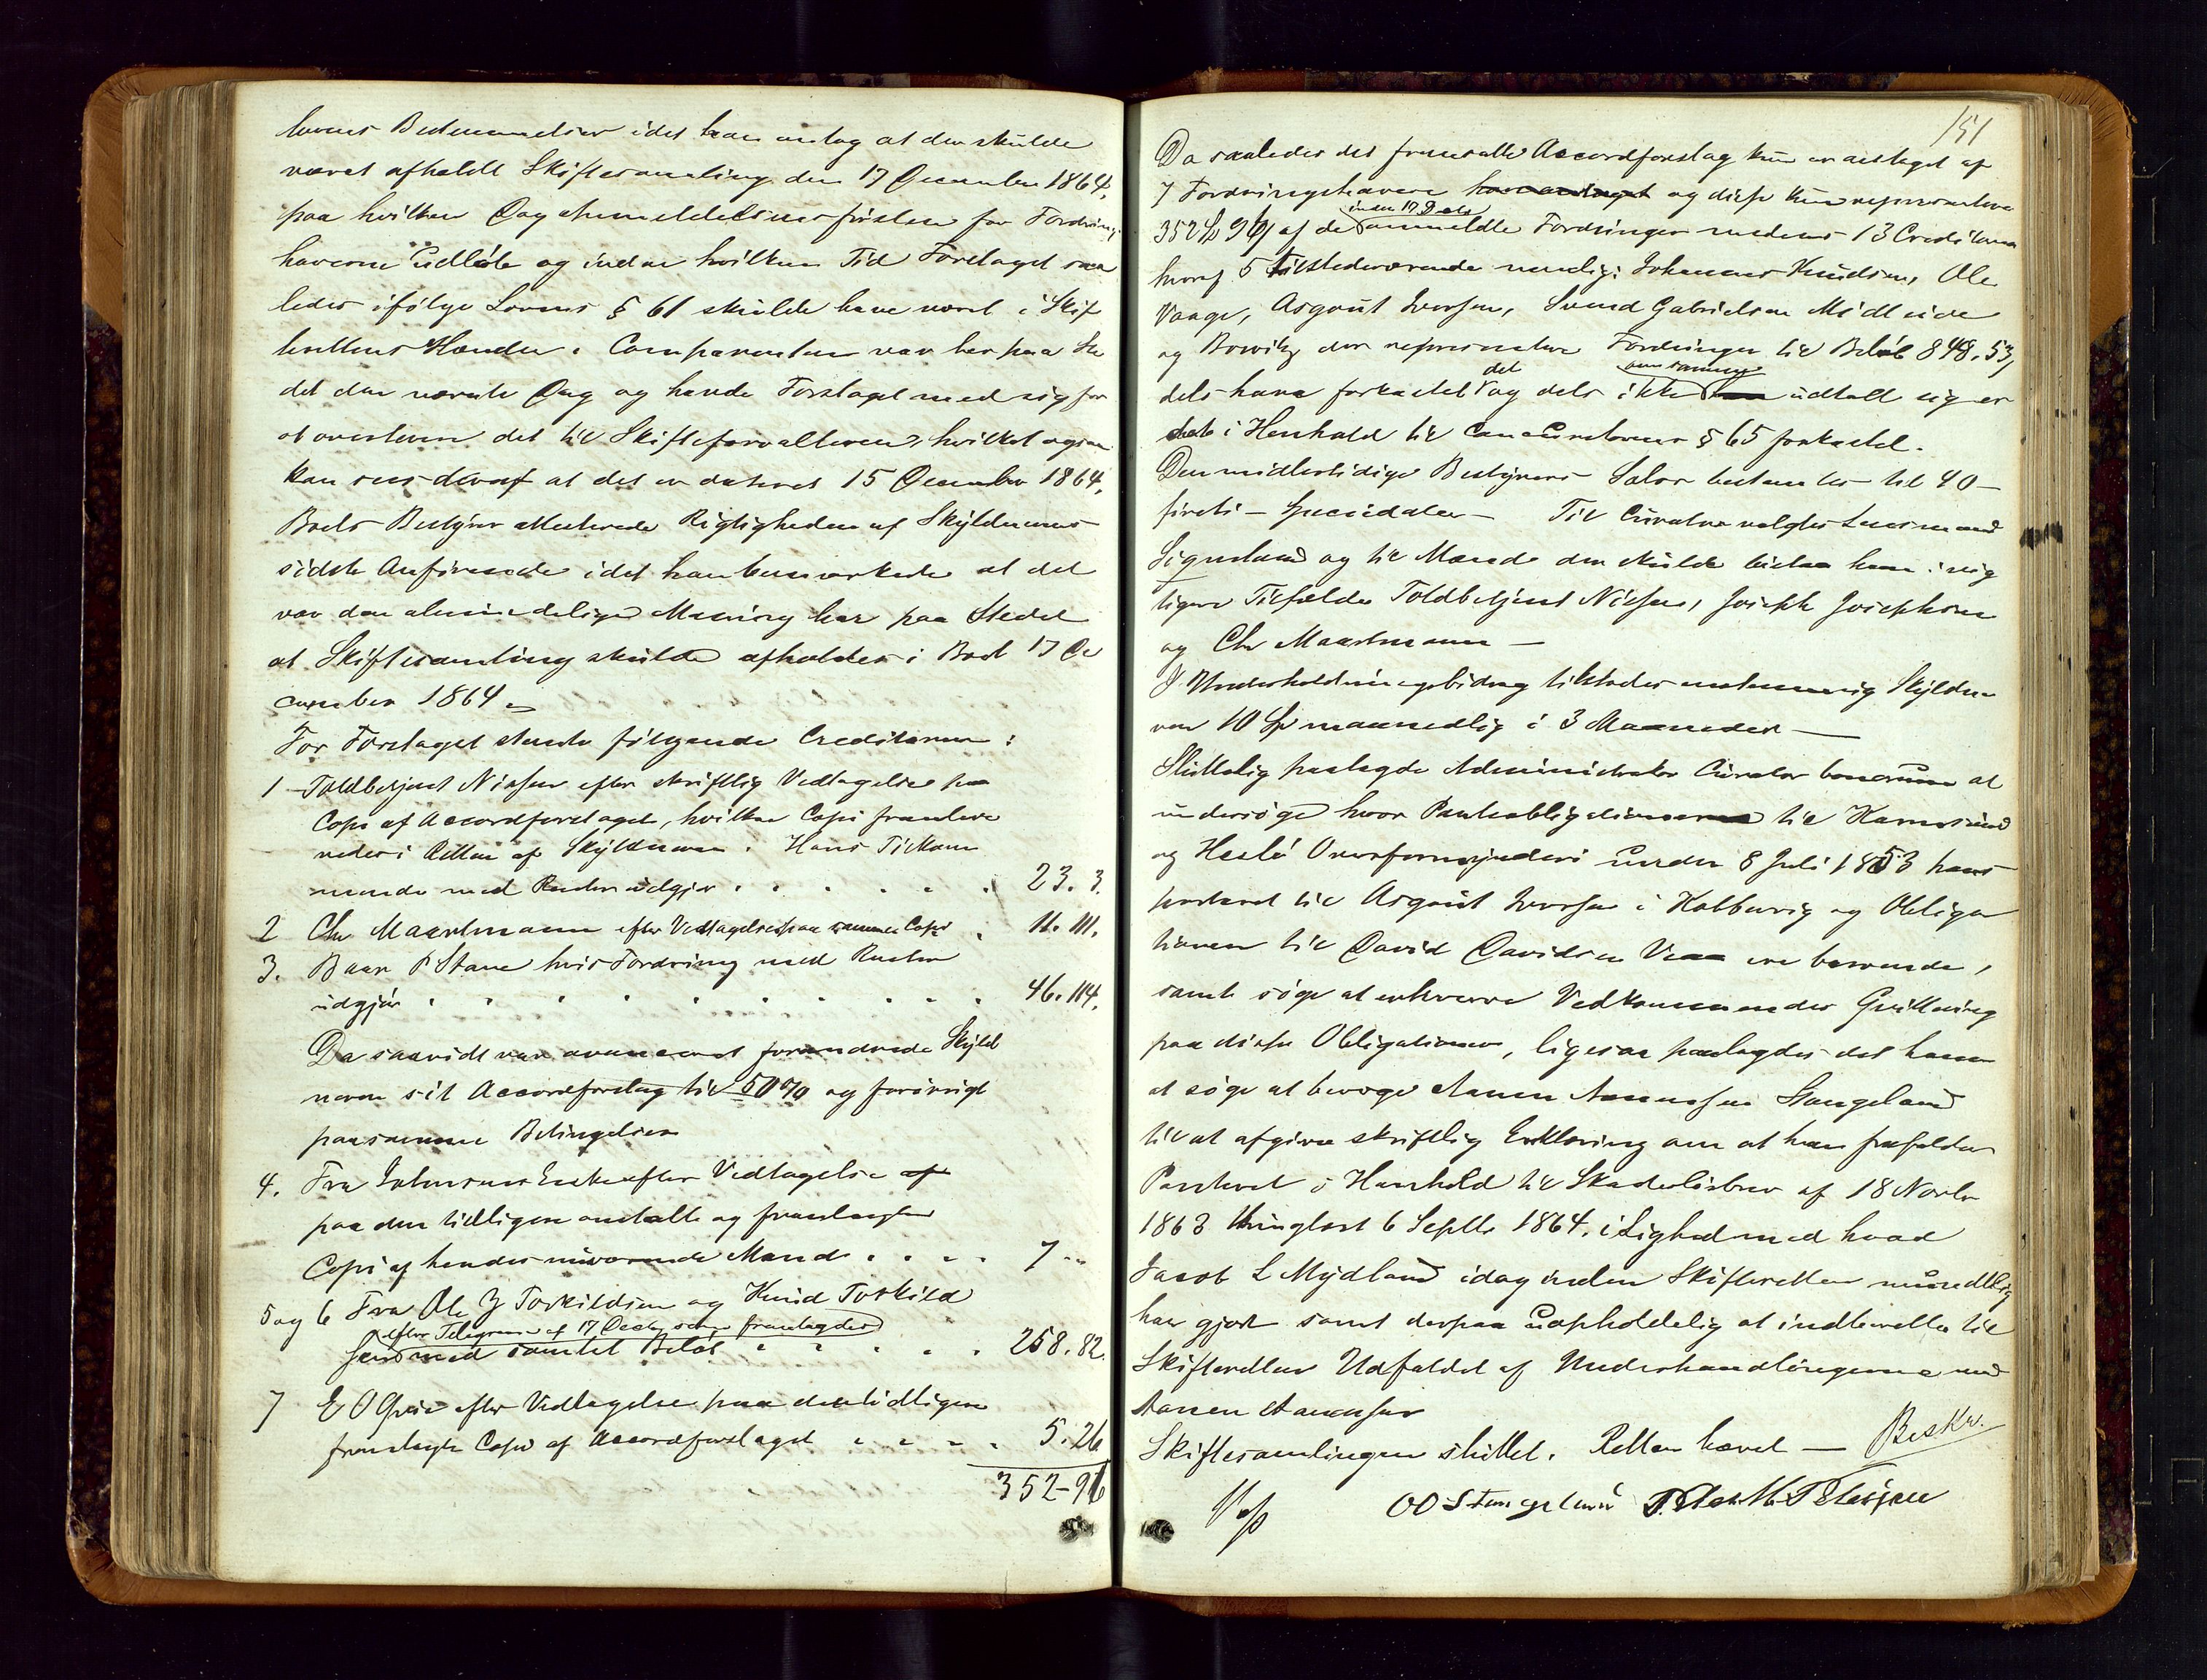 lovens Bestemmelser idet han antog at der skulde
været afholdt Skiftesamling den 17 December 1864,
paa hvilken Dag Anmeldelsesfristen for Fordrings
haverne Udløb og inden hvilken Tid Forslaget saa
ledes ifølge Lovens § 61 skulde have været i Skif
terettens Hænder. Comparenten var her paa Ste
det den nævnte Dag og havde Forslaget med sig for
at overlevere det til Skifteforvalteren, hvilket ogsaa
kan sees deraf at det er dateret 15 December 1864,
Boets Bestyrer attesterede Rigtigheden af Skyldnerens
sidste Anførende idet han bemærkede at det
var den almindelige Mening her paa Stedet
at Skiftesamling skulde afholdes i Boet 17 De
cember 1864 –
For Forslaget stemte følgende Creditorer:
1 Toldbetjent Nielsen efter skriftlig Vedtagelse paa
Copi af Accordforslaget, hvilken Copi fremleve
redes i Retten af Skyldneren. Hans Tilkom
mende med Renter udgjør . . . . . 23. 3.
2 Chr Maartmann efter Vedtagelse paa samme Copi . 11. 111.
3. Baar P Stave hvis Fordring med Renter
udgjør . . . . . . . . . 46. 114.
Da saavidt var avanceret forandrede Skyld
neren sit Accordforslag til 50% og forøvrigt
paa samme Betingelser
4. Fra Enke efter Vedtagelse af
paa den tidligere omtalte og fremlagte
Copi af hendes nuværende Mand . . . . 7 "
5 og 6 Fra Ole J Torkildsen og Knud Torkild
efter Telegram af 17 Decbr som fremlagdes
sen med samlet Beløb . . . . . 258. 82.
7 E O efter Vedtagelse paa den tidligere
fremlagte Copi af Accordforslaget . . . . 5. 26
352–96
151
Da saaledes det fremsatte Accordforslag kun er antaget af
7 Fordringshavere har antaget og disse kun repræsenterer
inden 17 Decbr
352 Sp 96 s af de anmeldte Fordringer medens 13 Creditorer
hvoraf 5 tilstedeværende nemlig: Johannes Knudsen, Ole
Vaage, Asgout Iversen, Svend Gabrielsen Midteide
og der repræsenterer Fordringer til Beløb 848. 53,
det om samme
dels have forkastet og dels ikke har udtalt sig er
dette i Henhold til Concurslovens § 65 forkastet.
Den midlertidige Bestyrers Salær bestemtes til 40 –
fireti – Speciedaler – Til Curator valgtes Lensmand
Sigvaland og til Mænd der skulde bistaa ham i vig
tigere Tilfælde Toldbetjent Nielsen, Joseph Josephsen
og Chr Maartmann –
I Underholdningsbidrag tilstodes enstemmig Skyldne
ren 10 Sp maanedlig i 3 Maaneder –
Sluttelig paalagde Administrator Curator bonorum at
undersøge hvor Panteobligationerne til Karmsund
og Hesbø Overformynderi under 8 Juli 1853 trans
porteret til Asgout Iversen i Kolbeinvig og Obliga
tionen til David Davidsen Veaa ere beroende,
samt søge at erhverve Vedkommendes Quittering
paa disse Obligationer, ligesaa paalagdes det ham
at søge at bevæge Aanen Aanensen Stangeland
til at afgive skriftlig Erklæring om at han frafalder
Panteret i Henhold til Skadesløsbrev af 18 Novbr
1863 thinglæst 6 Septbr 1864, i Lighed med hvad
Jacob L Mydland idag inden Skifteretten mundtlig
har gjort samt derpaa uopholdelig at indberette til
Skifteretten Udfaldet af Underhandlingerne med
Aanen Aanensen
Skiftesamlingen sluttet. Retten hævet – Beskr.
OO Stangeland Peder M. Petersen